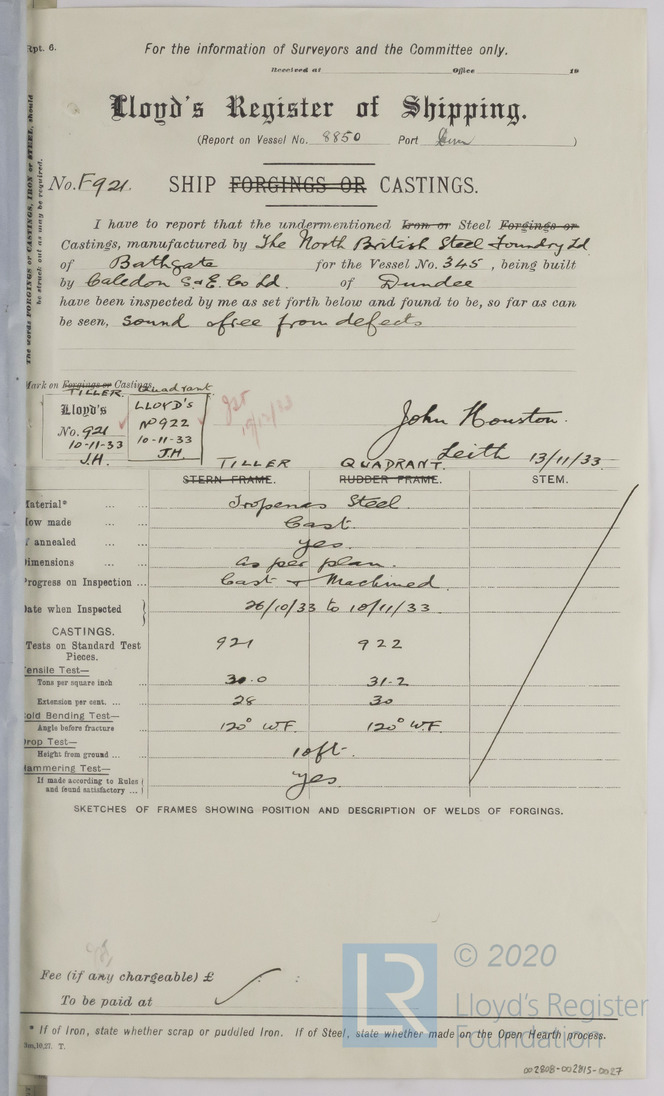 Rpt. 6.
For the information of Surveyors and the Committee only.
Received at Office 19
Lloyd's Register of Shipping.
(Report on Vessel No. 8850 Port )
No. F921. SHIP FORGINGS OR CASTINGS.
The words FORGINGS or CASTINGS, IRON or STEEL, should
be struck out as may be required.
I have to report that the undermentioned Iron or Steel Forgings or
Castings, manufactured by The North British Steel Foundry Ld
of Bathgate for the Vessel No. 345, being built
by Caledon S & E. Co Ld. of Dundee
have been inspected by me as set forth below and found to be, so far as can
be seen, sound & free from defects
Mark on Forgings or Castings
TILLER. Quadrant
Lloyd's
No. 921
10-11-33
J.H.
LLOYD'S
No 922
10-11-33
J.H.
John Houston.
Leith 13/11/33.
TILLER QUADRANT.
STERN FRAME. RUDDER FRAME. STEM.
Material* Tropenas Steel.
How made Cast.
If annealed yes.
Dimensions as per plan.
Progress on Inspection Cast & Machined.
Date when Inspected 26/10/33 to 10/11/33.
CASTINGS.
Tests on Standard Test Pieces. 921 922
Tensile Test—
Tons per square inch 30.0 31.2
Extension per cent. 28 30
Cold Bending Test—
Angle before fracture 120° W.F. 120° W.F.
Drop Test—
Height from ground 10ft.
Hammering Test—
If made according to Rules and found satisfactory yes.
SKETCHES OF FRAMES SHOWING POSITION AND DESCRIPTION OF WELDS OF FORGINGS.
Fee (if any chargeable) £ :
To be paid at
* If of Iron, state whether scrap or puddled Iron. If of Steel, state whether made on the Open Hearth process.
10.27. T.
LR
© 2020
Lloyd's Register
Foundation
002808-002815-0027